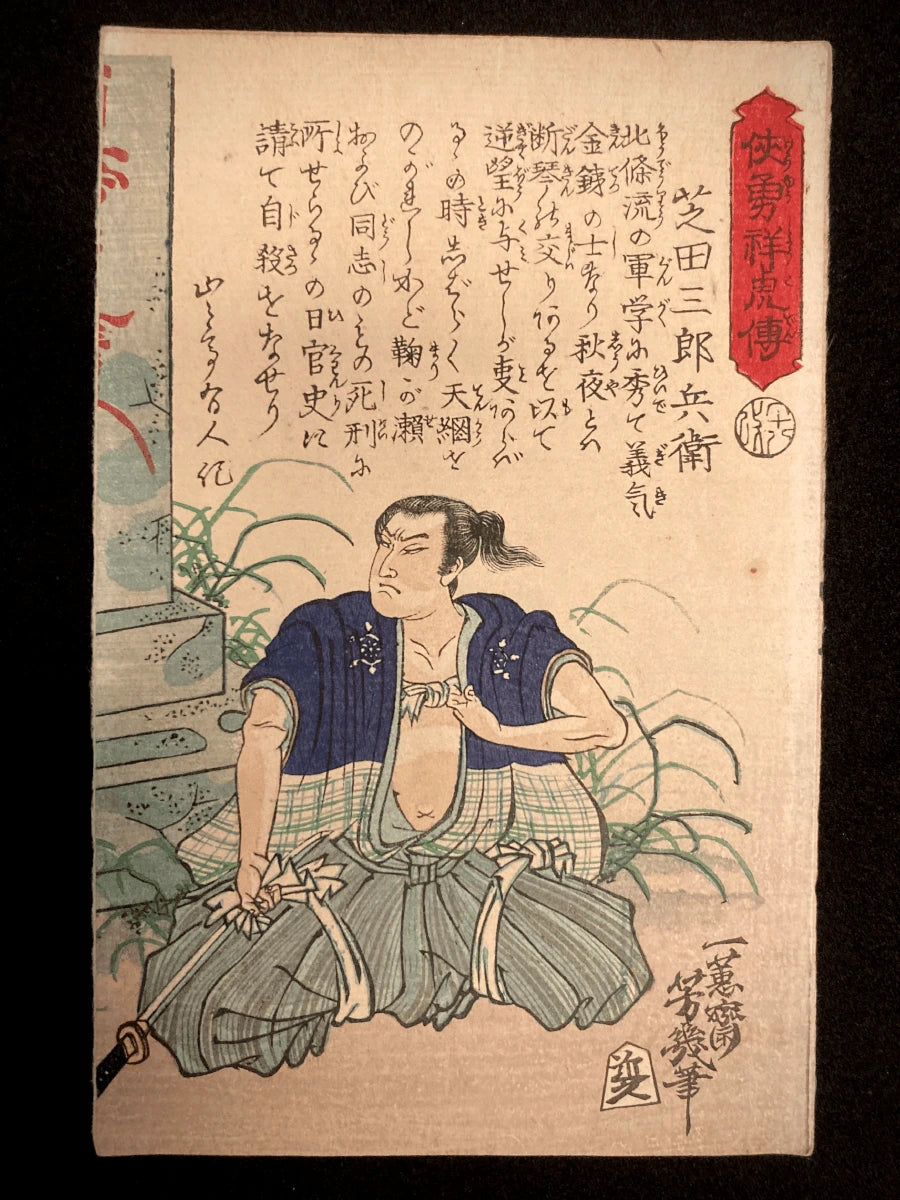 侠勇祥虎傳
芝田三郎兵衛
北條流の軍学に秀て義気
金鉄の士なり秋夜とハ
断琴の交りあるを以て
逆望に与せしが事
の時しばらく天網を
のがれしかど鞠が瀬
および同志のもの死刑に
所せらるゝの日官吏に
請て自殺をなせり
山々亭有人記
一蕙齋
芳幾筆